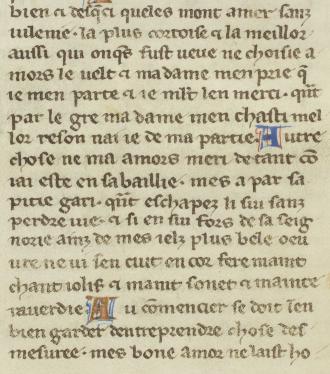 bien ⁊ desq̃a queles mont amer sanz
uileme. la plus cortoise ⁊ la meillor
aussi qui onq̃s fust ueue ne choisie a
mors le uelt ⁊ ma dame men prie q̃
ie men parte ⁊ ie mlt̃ len merci. q̃nt
par le gre ma dame men chasti mel
lor reson nai ie de ma partie. Autre
chose ne ma amors meri de tant cõ
iai este en sa baillie. mes a par sa
pitie gari. q̃nt eschapez li sui sanz
perdre uie. ⁊ si en sui fors de sa seig
norie ainz de mes ielz plus bele oeu
ure ne ui sen cuit encor fere maint
chant iolif ⁊ maint sonet ⁊ mainte
rauerdie. Au cõmencier se doit len
bien garder dentreprendre chose des
mesuree. mes bone amor ne laist ho